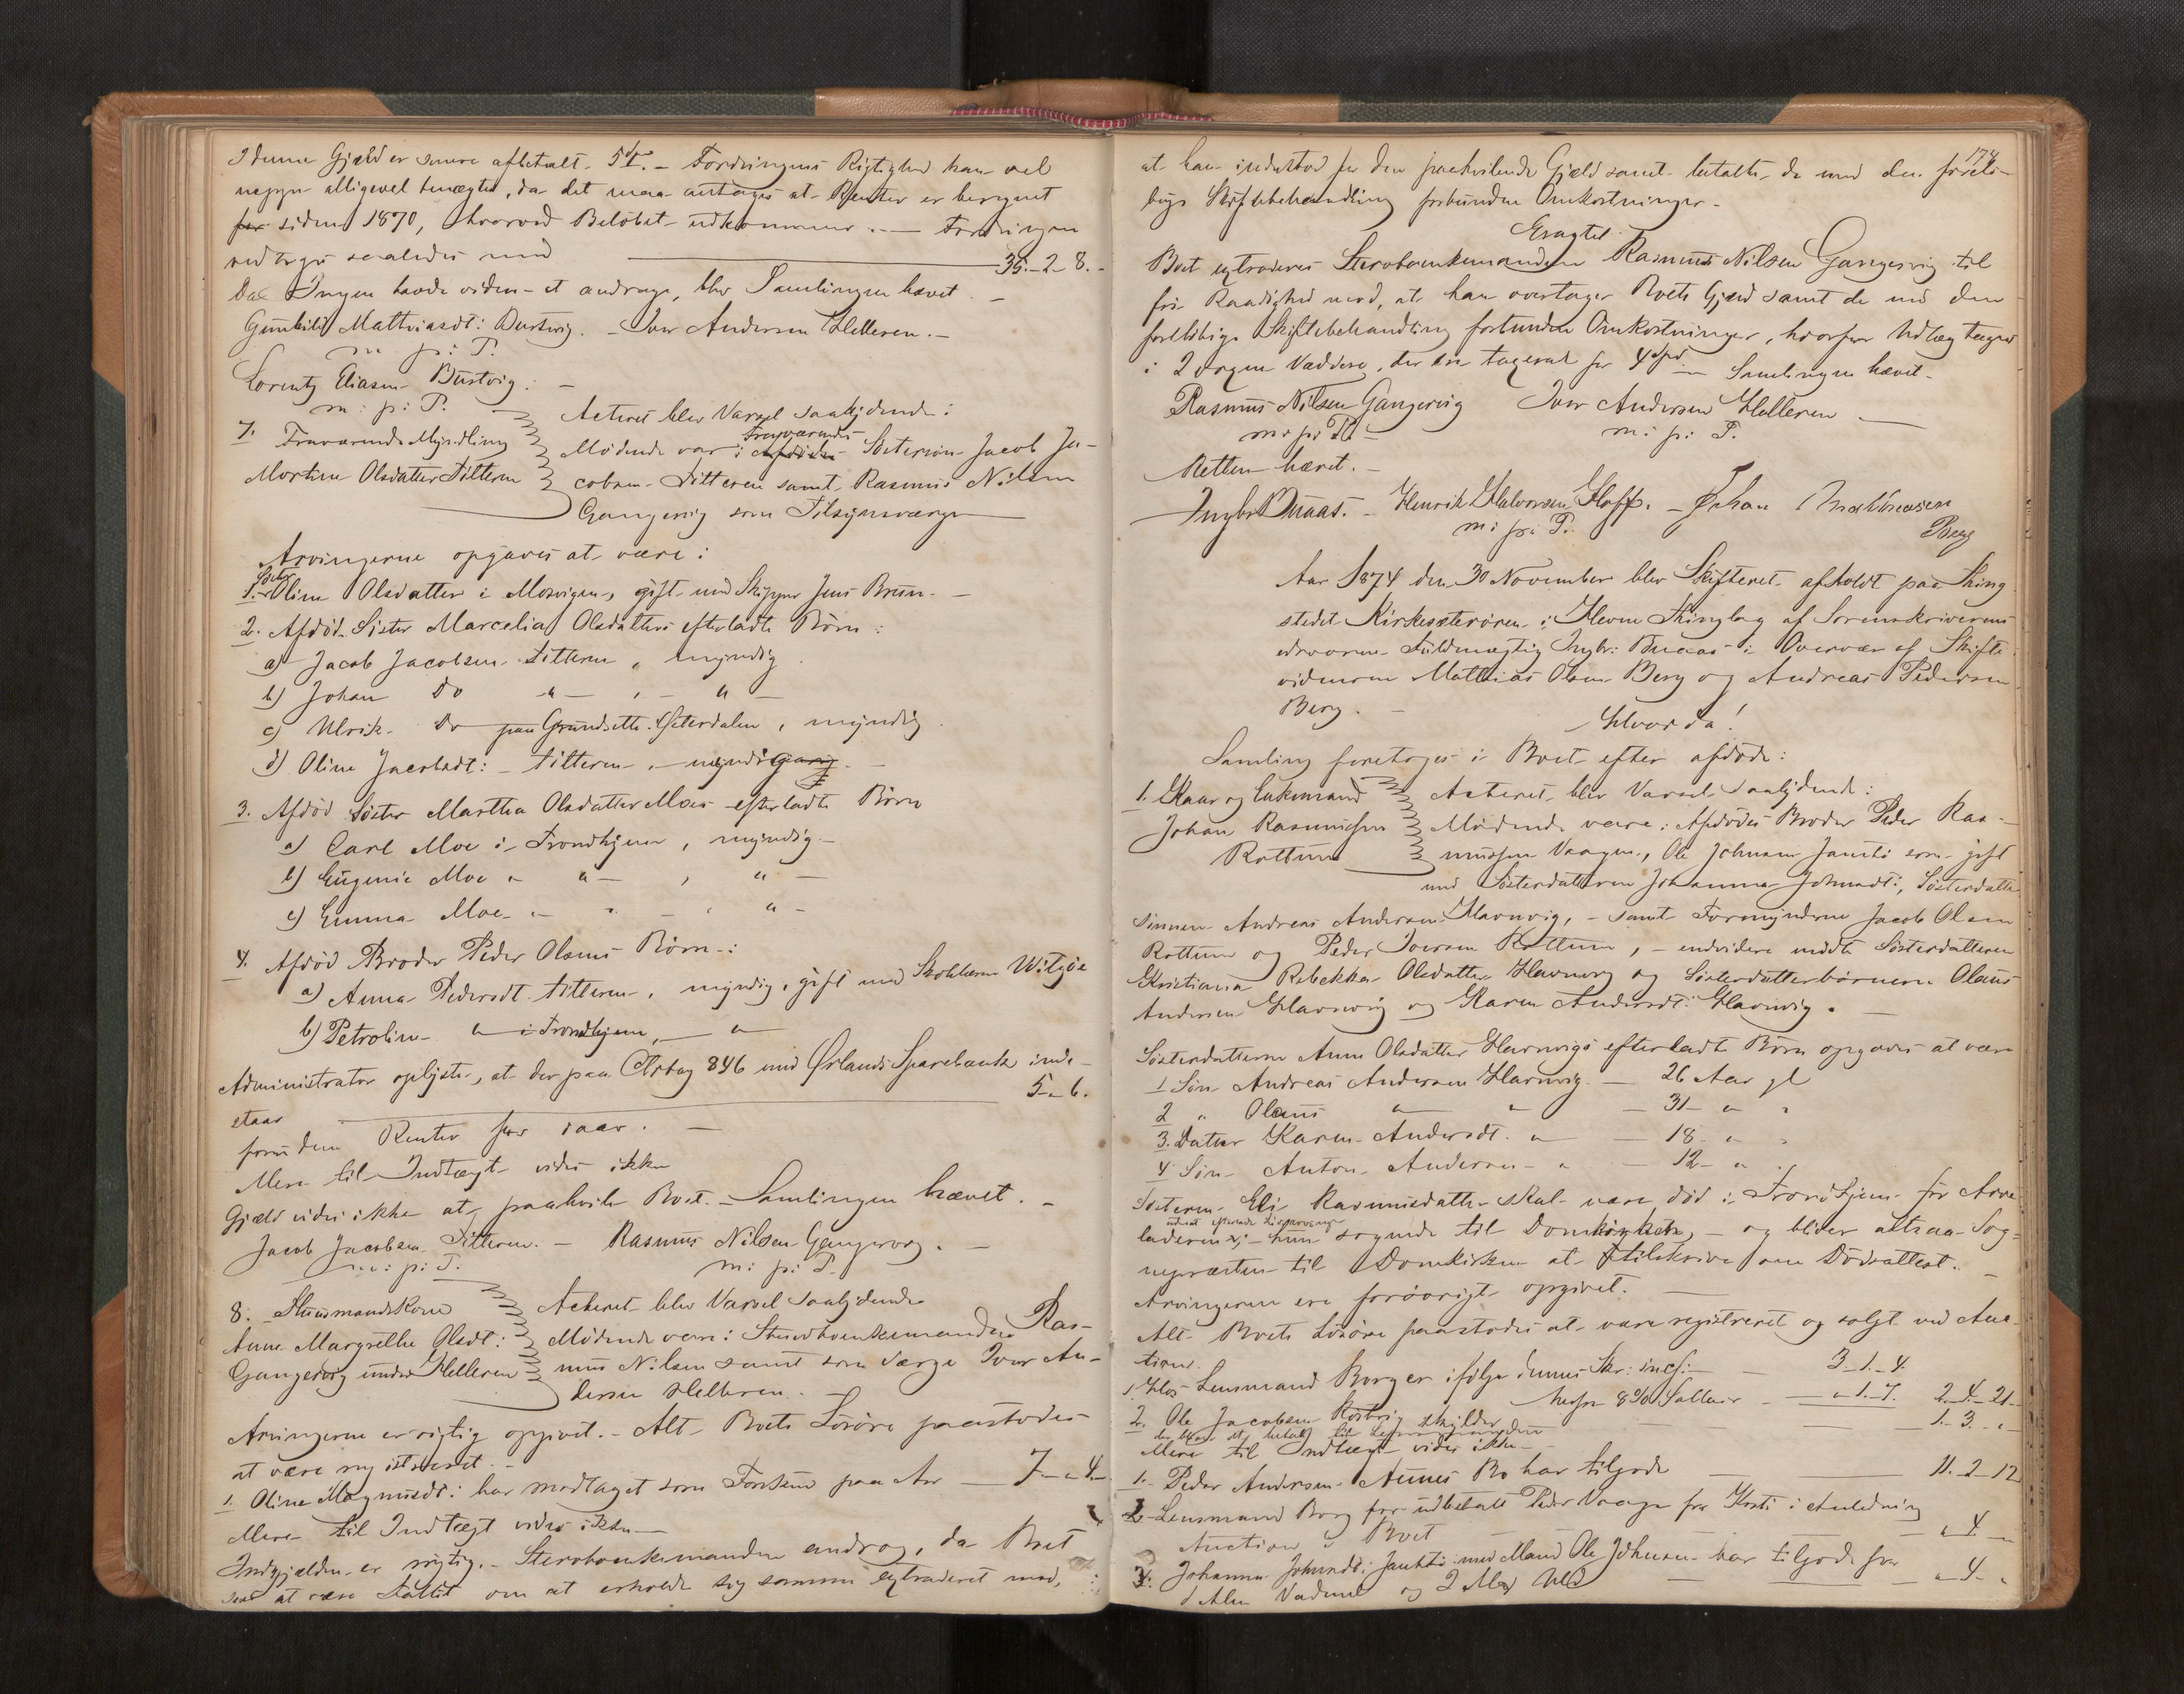 I denne Gjæld er senere afbetalt 5 . - Fordringens Rigtighed kan vel
neppe alligevel benægtes, da det maa antages at Renter er beregnet
for siden 1870, hvorved Beløbet udkommer. — Fordringen
vedtoges saaledes med — 35 - 2 - 8.
Da Ingen havde viden at andrage, blev Samlingen hævet. —
Gunhild Mathiasdt: Burtvig. - Iver Andersen Helleren. -
m. p: P.
Lorentz Eliasen Burtvig. -
m: p: P.
7. Fraværende Myndling
Mortine Olsdatter Titteren
Acteret blev Varsel saalydende:
Mødende var: Afdødes Fraværendes Søstersøn Jacob Ja-
cobsen Titteren samt Rasmus Nilsen
Gangervig som Tilsynsværge
Arvingerne opgaves at være:
1. Søster Oline Olsdatter i Mosvigen, gift med Skipper Jens Brun. -
2. Afdød Søster Marcelia Olsdatters efterladte Børn:
a) Jacob Jacobsen Titteren, myndig.
b) Johan Do " - , - " -
c) Ulrik Do paa Grundsett. Østerdalen, myndig.
d) Oline Jacobsdt: - Titteren - , - myndig gang. -
3. Afdød Søster Martha Olsdatter Moes efterladte Børn
a) Carl Moe i Trondhjem, myndig -
b) Eugenie Moe " " - , " -
c) Emma Moe - " " - , " -
4. Afdød Broder Peder Olsens Børn :
a) Anna Pedersdt. Titteren, myndig, gift med Skolelærer Wilgøe
b) Petroline " i Trondhjem, - "
Administrator oplyste, at der paa Olstag 846 med Ørlands Sparebank inde-
staar — 5 " 6.
foruden Renter for iaar. -
Mere til Indtægt vides ikke
Gjæld vides ikke at paahvile Boet. - Samlingen hævet. -
Jacob Jacobsen Titteren. - Rasmus Nilsen Gangervig. -
m: p: P. m: p: P.
8. Huusmandskone
Anne Margrethe Olsdt:
Gangervig under Helleren
Acteret blev Varsel saalydende
Mødende vare: Stervboenkemanden Ras-
mus Nilsen samt som Værge Iver An-
dersen Helleren. -
Arvingerne er rigtig opgivet. - Alt Boets Løsøre paastodes
at være registreret. -
1. Oline Magnusdt: har modtaget som Forskud paa Arv — 7 - " 4 -
Mere til Indtægt vides ikke —
Indgjælden er rigtig. - Stervboenkemanden androg, da Boet
at være fallit om at erholde sig samme extraderet mod,
174
at han indestod for den paahvilende Gjæld samt betalte de med den forelø-
bige Skiftebehandling forbundne Omkostninger. -
Eragtet.
Boet extraderes Stervboenkemanden Rasmus Nilsen Gangervig til
fri Raadighed mod, at han overtager Boets Gjæld samt de med den
foreløbige Skiftebehandling forbundne Omkostninger, hvorfor Udlæg tages
i 2 Væddere, der ere taxerat for 4 Spd — Samlingen hævet.
Rasmus Nilsen Gangervig Iver Andersen Helleren —
m: p: P. - m: p: P.
Retten hævet. -
Ingbr Buaas. - Henrik Halvorsen Hoff. - Johan Mathiasen
m: p: P. Berg
Aar 1874 den 30 November blev Skifteret afholdt paa Thing
stedet Kirkesæterøren i Hevne Thinglag af Sorenskriverens
edsvorne Fuldmægtig Ingbr: Buaas i Overvær af Skifte
vidnerne Mathias Olsen Berg og Andreas Pedersen
Berg. - Hvorda!
Samling foretoges i Boet efter afdøde:
1. Gaar og Enkemand
Johan Rasmussen
Rottum
Acteret blev Varsel saalydende:
Mødende vare: Afdødes Broder Peder Ras-
mussen Vaagen, Ole Johnsen Jamtø som gift
med Søsterdatteren Johanna Johnsdt:, Søsterdatter
sønnen Andreas Andersen Havnvig, - samt Formynderne Jacob Olsen
Rottum og Peder Iversen Rottum, - endvidere mødte Søsterdatteren
Kristiana Rebekka Olsdatter Havnvig og Søsterdatterbørnene Olaus
Andersen Havnvig og Karen Andersdt: Havnvig. -
Søsterdatteren Anne Olsdatter Havnvigs efterladte Børn opgaves at være
1 Søn Andreas Andersen Havnvig - 26 Aar gl
2 " Olaus " " - 31 - " "
3. Datter Karen Andersdt. " - 18 - " "
4 Søn Anton Andersen - " - 12 - " "
Søsteren Eli Rasmusdatter skal være død i Trondhjem før Arve
laderen uden at efterlade Livsarvinger, - hun sognede til Domkirken, - og bliver altsaa Sog-
nepræsten til Domkirken at tilskrive om Dødsattest. -
Arvingerne ere forøvrigt opgivet. —
Alt Boets Løsøre paastodes at være registreret og solgt ved Auc-
tion.
1. Hos Lensmand Borg er ifølge dennes Skr: incf: — 3 - 1 - 4
8% Sallair — " 1 - 7. 2 - 4 - 21 -
2. Ole Jacobsen skylder — 1. 3. "
Mere til Indtægt vides ikke —
1. Peder Andersen Aunes Bo har tilgode — 11 - 2 - 12
2. Lensmand Borg for udbetalt Peder Vaagen for Kost i Anledning
Auction i Boet — " 4 "
3. Johanna Johnsdt: Jamtø med Mand Ole Johnsen har tilgode for
Alen Vadmel og 2 Uld — " 4 - "